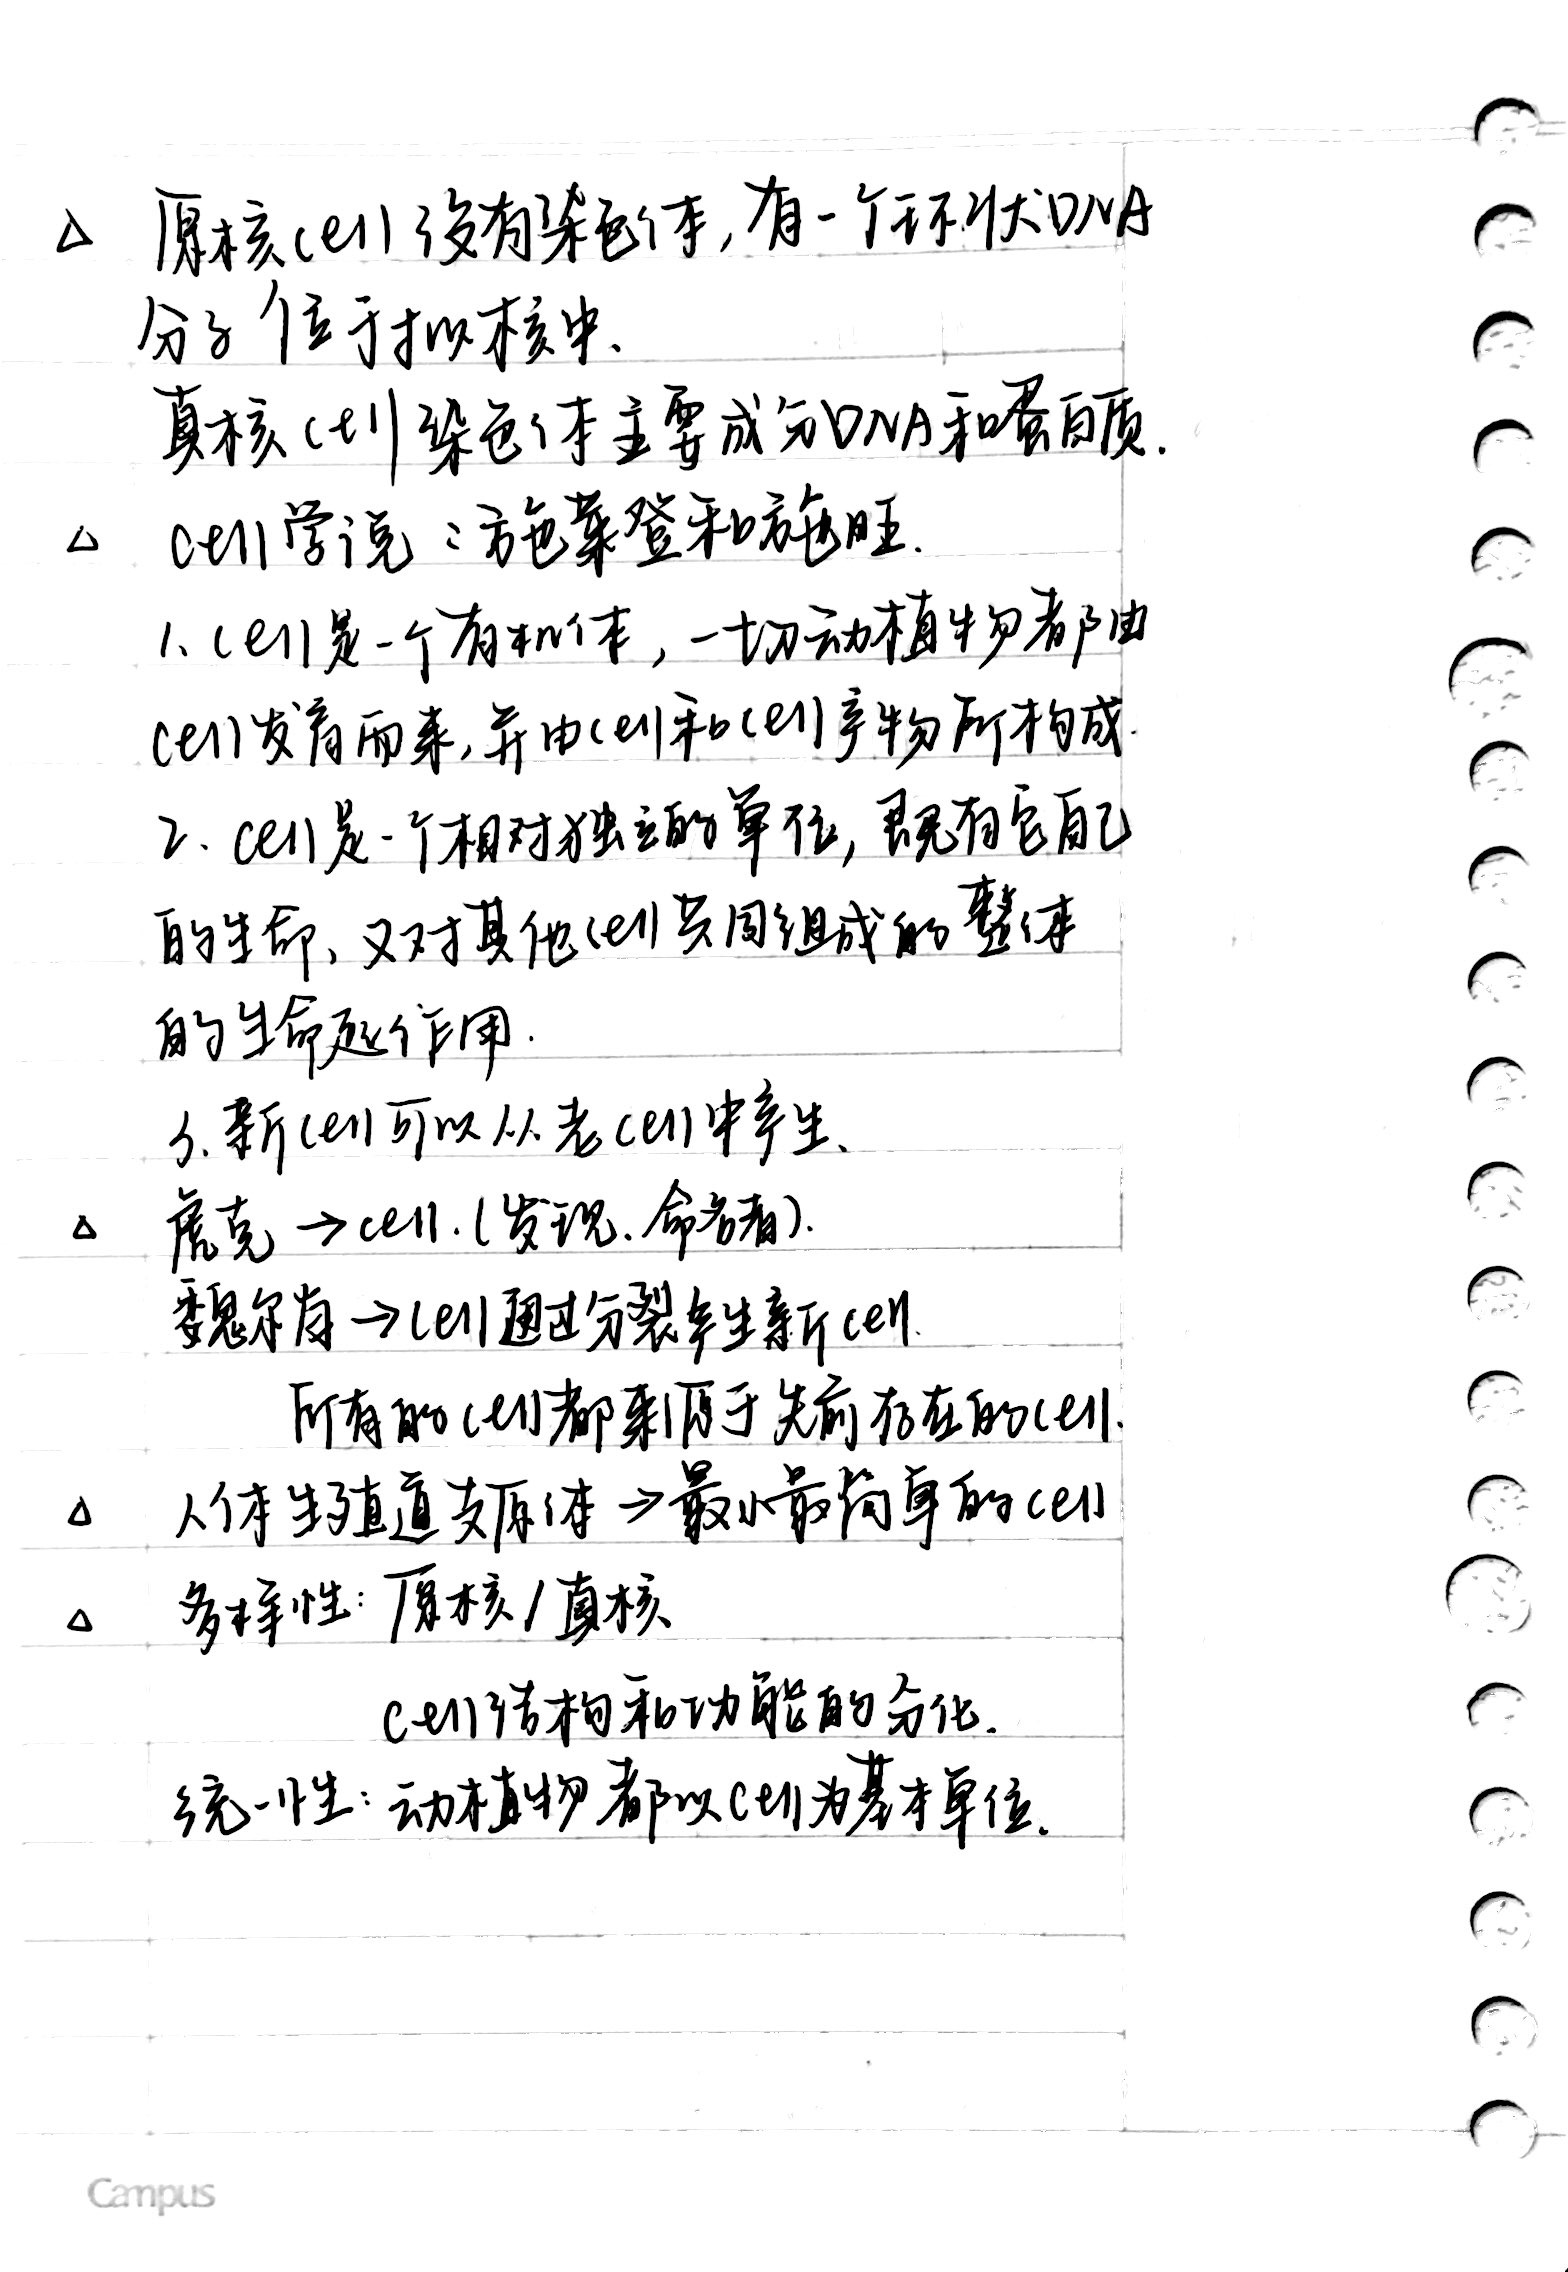 △ 原核cell没有染色体,有一个环状DNA
分子位于拟核中.
真核cell染色体主要成分DNA和蛋白质.
△ cell学说:施莱登和施旺.
1.cell是一个有机体,一切动植物都由
cell发育而来,并由cell和cell产物所构成.
2.cell是一个相对独立的单位,既有它自己
的生命、又对其他cell共同组成的整体
的生命起作用.
3.新cell可以从老cell中产生、
△ 虎克→cell.(发现、命名者).
魏尔肖→cell通过分裂产生新cell.
所有的cell都来源于先前存在的cell.
△ 人体生殖道支原体→最小最简单的cell
△ 多样性:原核/真核
cell结构和功能的分化.
统一性:动植物都以cell为基本单位.
Campus